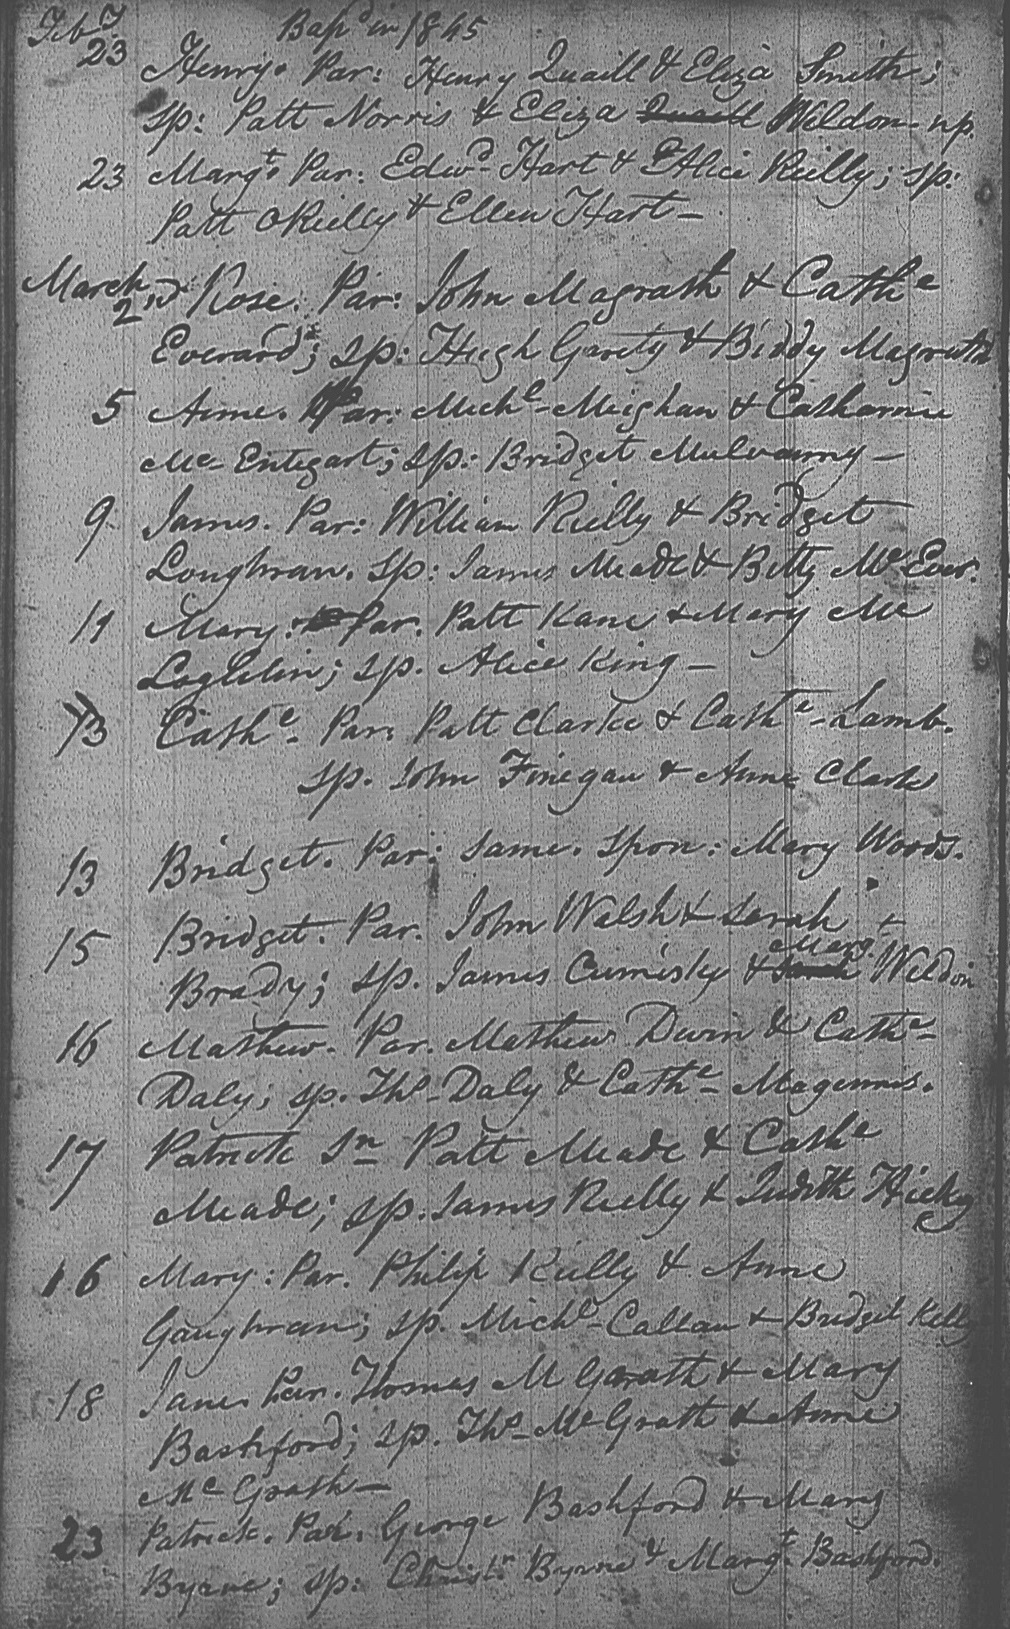 Feby. Bapd in 1845
23 Henry. Par: Henry Quaill & Eliza Smith;
sp: Patt Norris & Eliza Quaill Weldon - np.
23 Margt. Par: Edwd Hart & Alice Reilly; sp:
Patt OReilly & Ellen Hart -
March
2nd Rose. Par: John Magrath & Cathe
Everard; sp: Hugh Garety & Biddy Magrath
5 Anne. Par: Michl Meighan & Catharine
Mc Entegart; sp: Bridget Mulvanny -
9 James. Par: William Rielly & Bridget
Loughran. sp: James Meade & Betty McEver.
11 Mary. Par. Patt Kane & Mary Mc
Loghlin; sp. Alice King -
13 Cathe. Par: Patt Clarke & Cathe Lamb.
sp. John Finegan & Anne Clark
13 Bridget. Par: same. spon: Mary Woods.
15 Bridget. Par. John Walsh & Sarah
Brady; sp. James Cumisky & Sarah Margt Weldon
16 Mathew. Par. Mathew Dwin & Cathe
Daly; sp. Ths Daly & Cathe Magennis.
17 Patrick Sn Patt Meade & Cathe
Meade; sp. James Rielly & Judith Hicky
16 Mary: Par. Philip Rielly & Anne
Gaughran; sp. Michl Callan & Bridget Kelly
18 Jane. Par. Thomas M Grath & Mary
Bashford; sp. Ths McGrath & Anne
Mc Grath -
23 Patrick. Par. George Bashford & Mary
Byrne; sp: Christr. Byrne & Margt. Bashford.